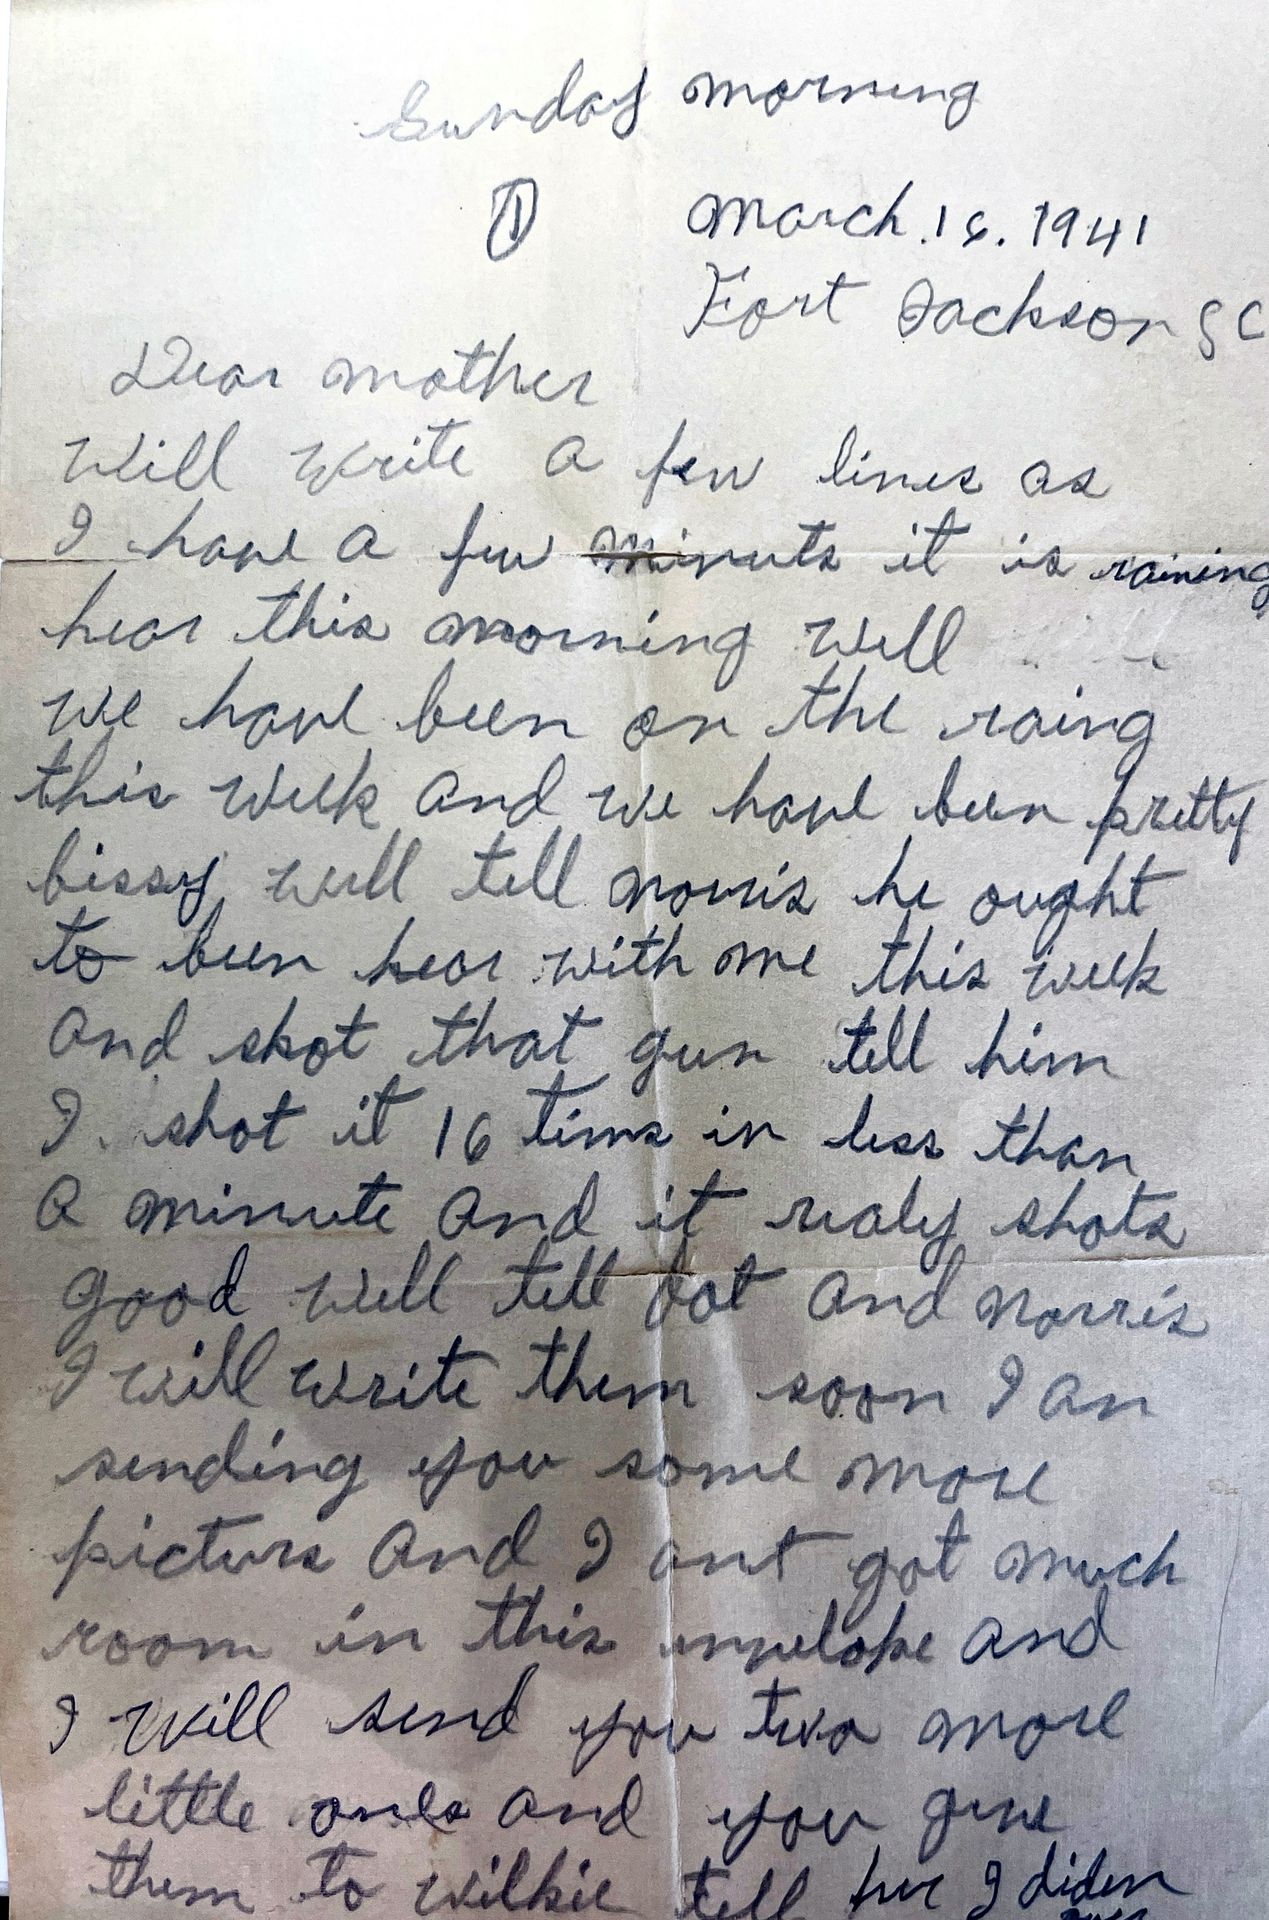 Sunday morning
1
March. 16. 1941
Fort Jackson S C
Dear mother
will write a few lines as
I have a few minuts it is raining
hear this morning well
we have been on the raing
this week and we have been pretty
bissy well tell norris he ought
to been hear with me this week
and shot that gun tell him
I. shot it 16 tims in less than
a minute and it realy shots
good well tell dot and norris
I will write them soon I an
sending you some more
picturs and I ant got much
room in this envelope and
I will send you two more
little ones and you give
them to wilkie tell her I diden